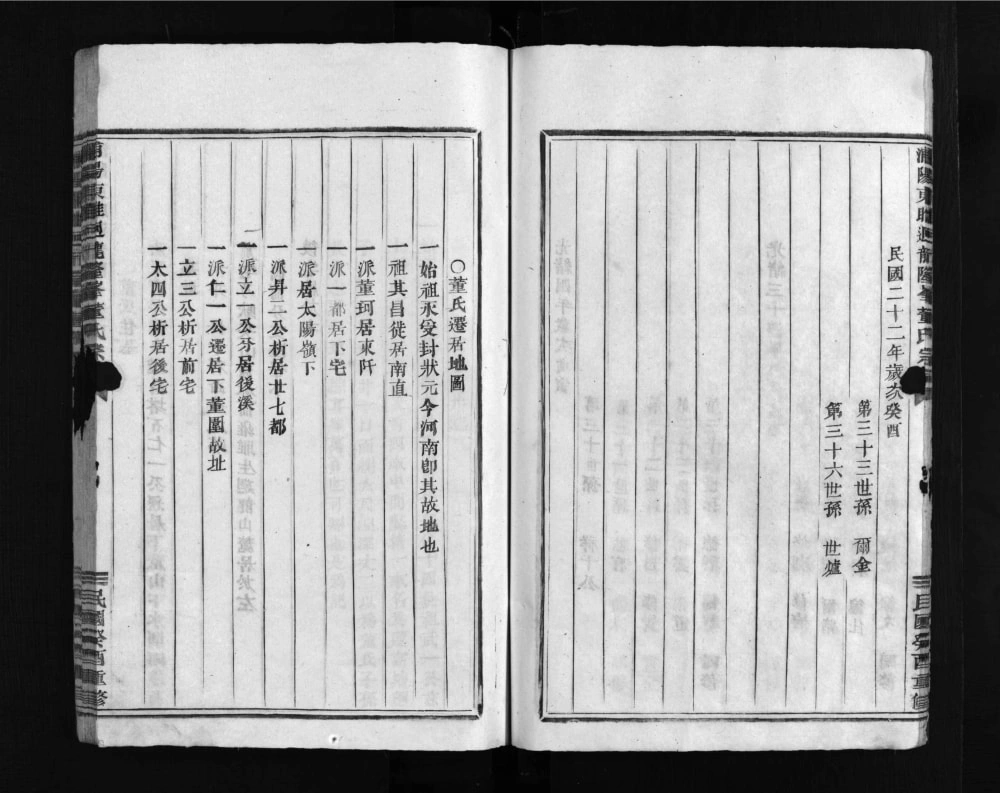 民國二十二年歲次癸酉
第三十三世孫 爾金
第三十六世孫 世爐
民國癸酉重修
〇董氏遷居地圖
一始祖永受封狀元今河南卽其故地也
一祖其昌徙居南直
一派董珂居東阡
一派一都居下宅
一派居太陽嶺下
一派昇二公析居廿七都
一派立一公分居後溪
一派仁一公遷居下董園故址
一立三公析居前宅
一太四公析居後宅
民國癸酉重修